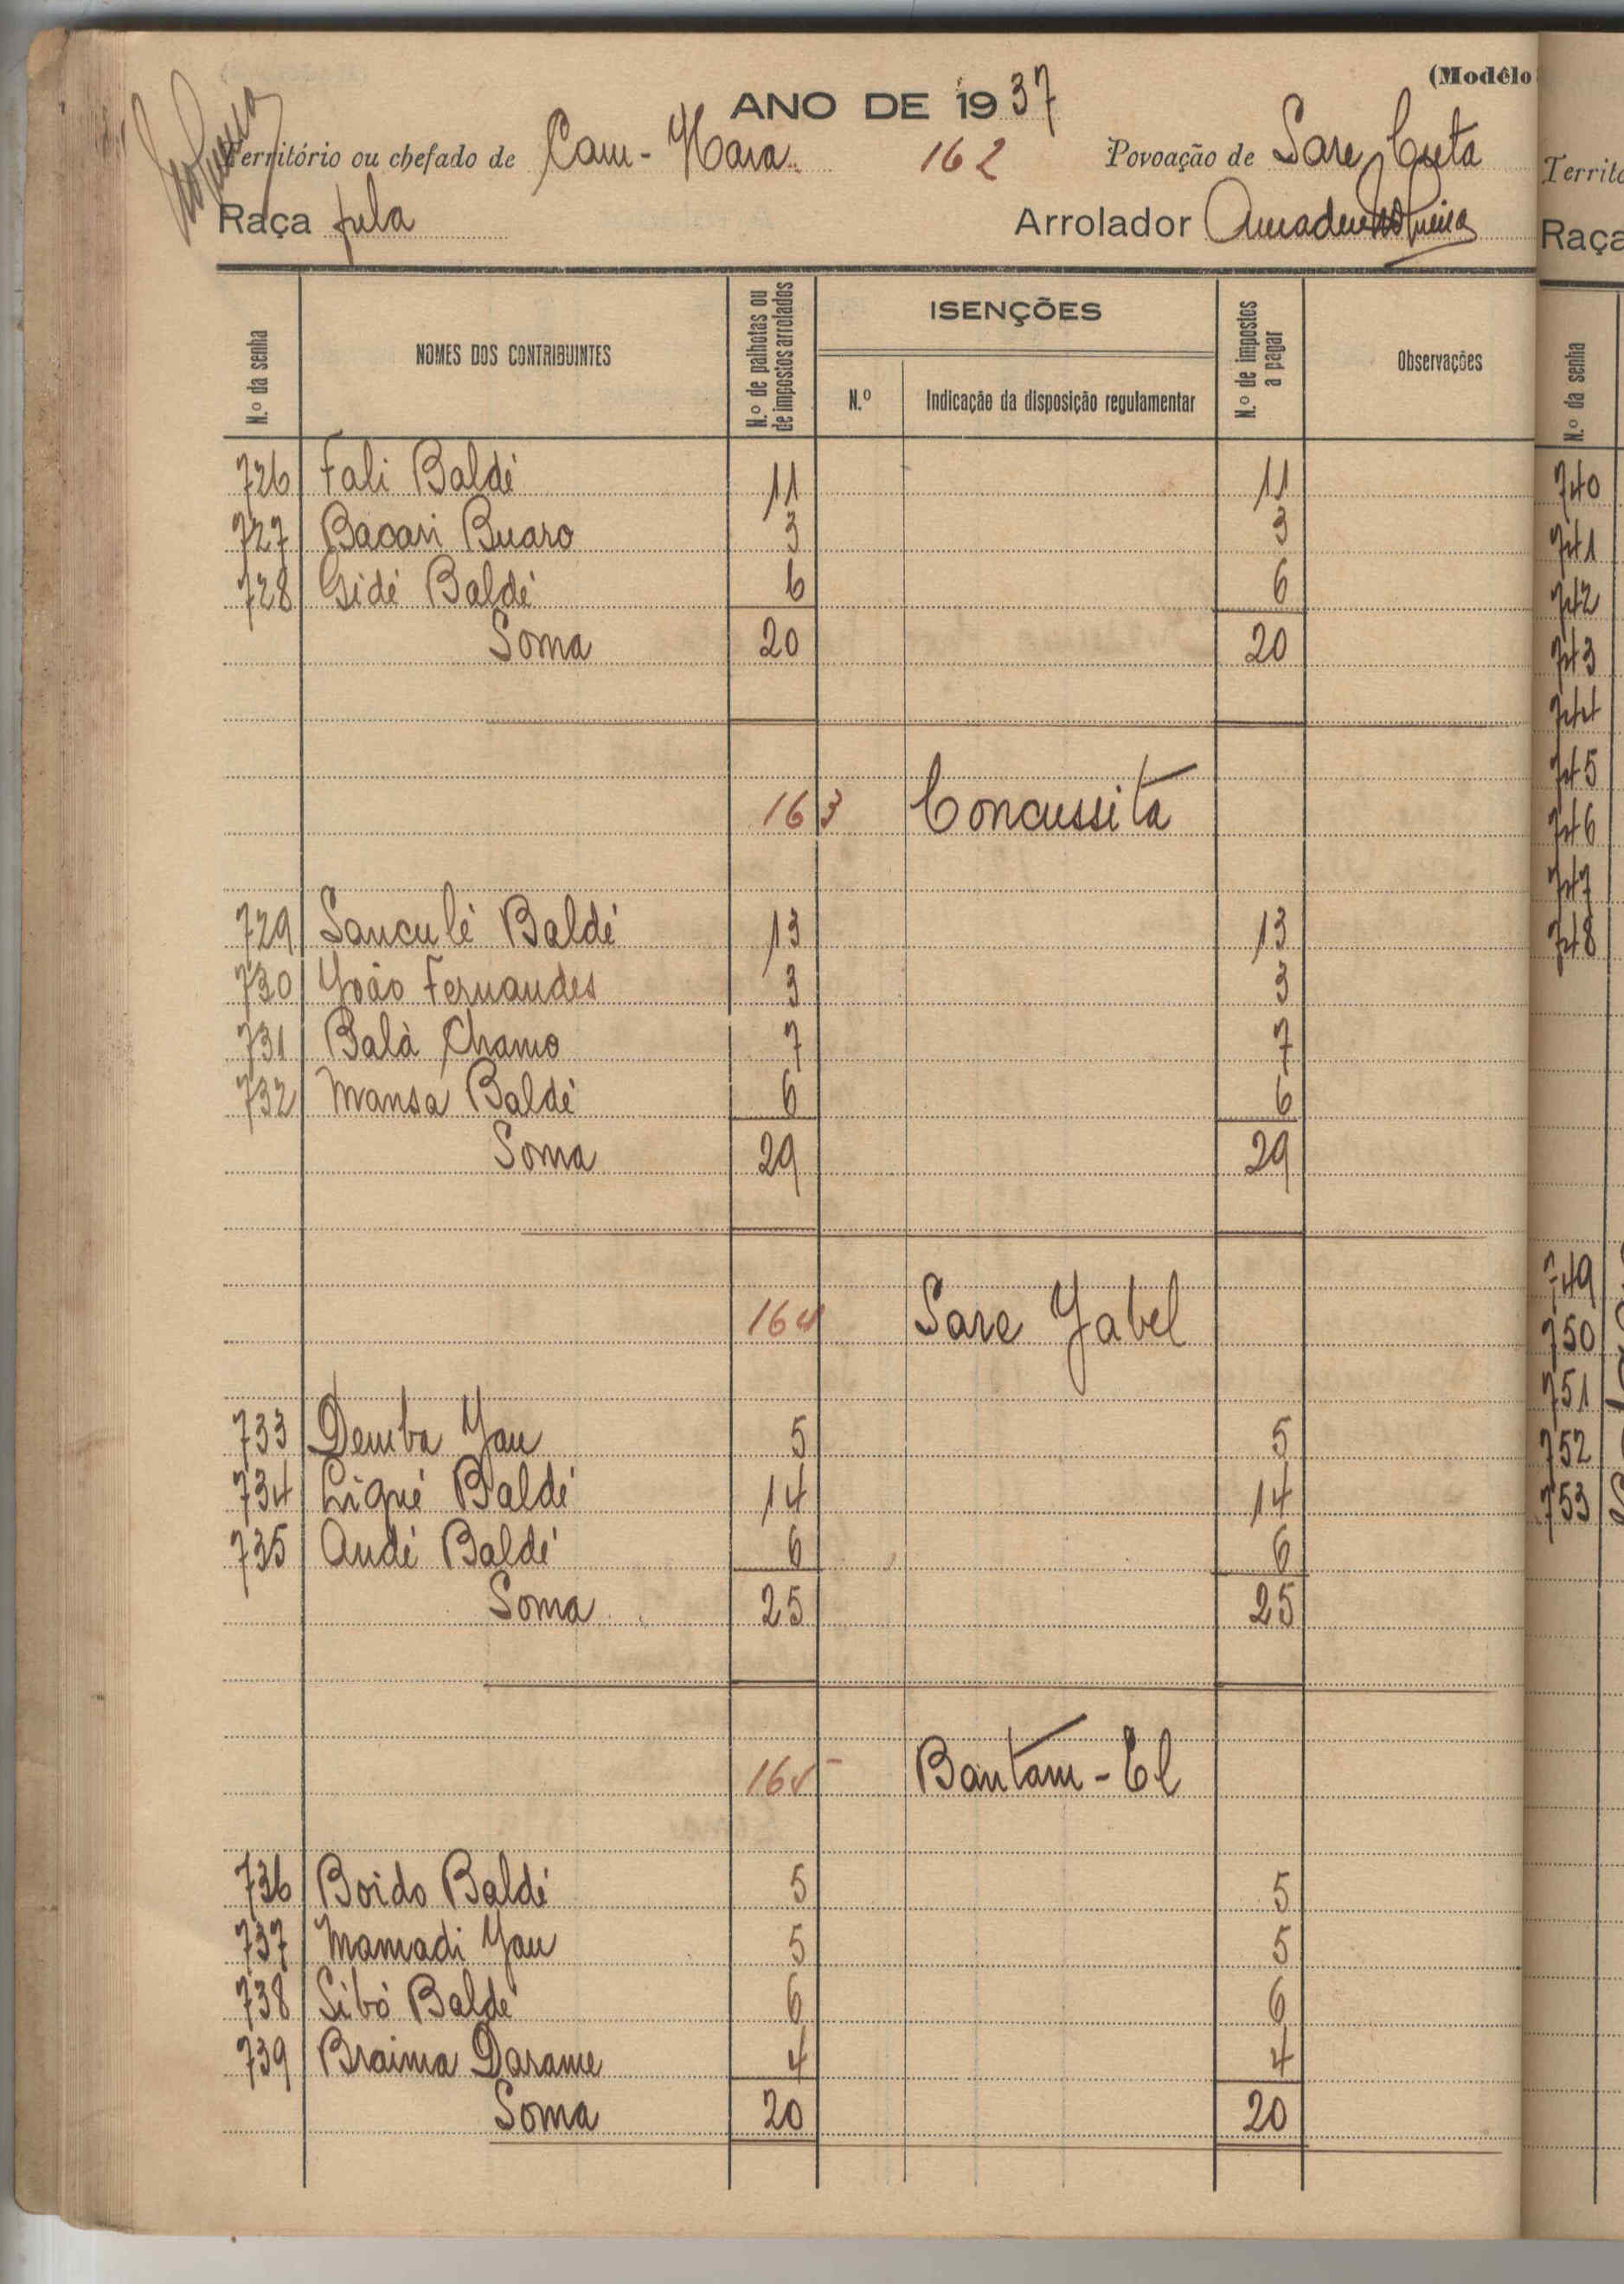 (Modêlo
ANO DE 1937
Território ou chefado de Cam-Hara 162 Povoação de Sare Cuta
Raça fula Arrolador Amadeu Nogueira
N.º da senha NOMES DOS CONTRIBUINTES N.º de palhotas ou de impostos arrolados ISENÇÕES N.º Indicação da disposição regulamentar N.º de impostos a pagar Observações
726 Fali Baldé 11 11
727 Bacari Buaro 3 3
728 Gidé Baldé 6 6
Soma 20 20
163 Concussita
729 Sanculé Baldé 13 13
730 João Fernandes 3 3
731 Balà Chamo 7 7
732 Mansa Baldé 6 6
Soma 29 29
164 Sare Yabel
733 Demba Jau 5 5
734 Liqué Baldé 14 14
735 Andé Baldé 6 6
Soma 25 25
165 Bantam-El
736 Boido Baldé 5 5
737 Mamadi Jau 5 5
738 Sibó Baldé 6 6
739 Braima Darame 4 4
Soma 20 20
Territo
Raça
N.º da senha
740
741
742
743
744
745
746
747
748
749
750
751
752
753